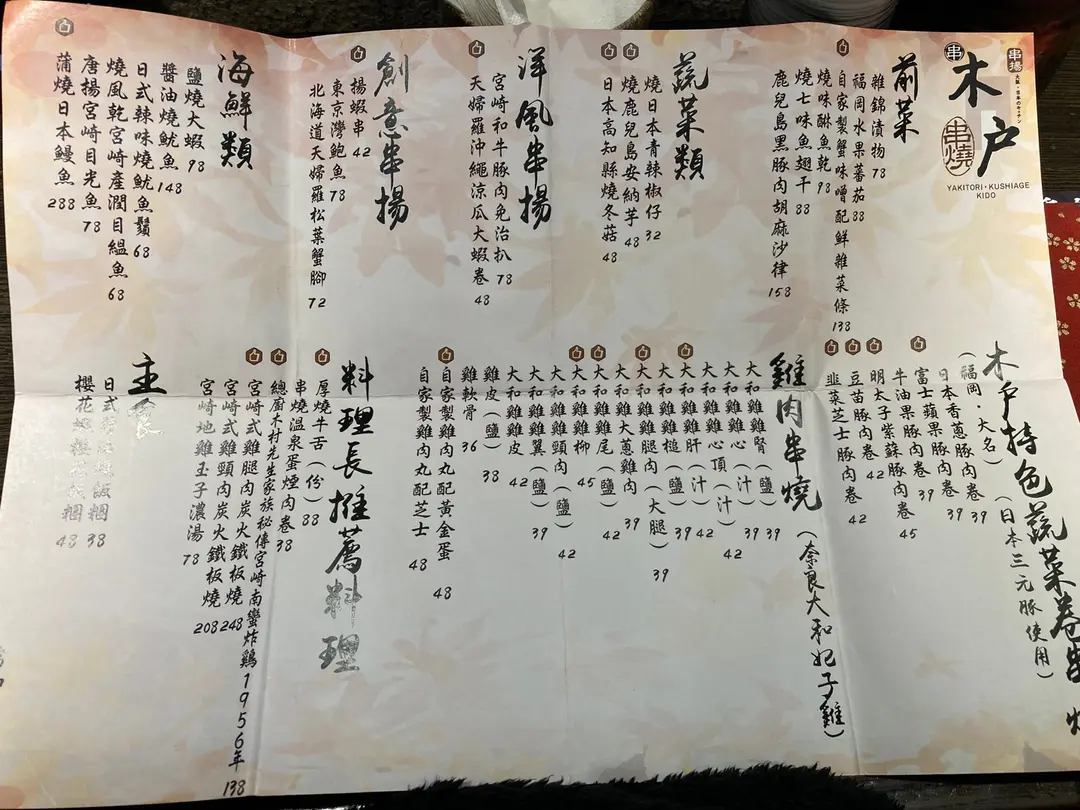 串
木戸
串燒
串揚
大阪・日本のキッチン
YAKITORI・KUSHIAGE
KIDO
前菜
雜錦漬物 78
福岡水果蕃茄 88
自家製蟹味噌配鮮雜菜條 138
燒味醂魚乾 98
燒七味魚翅干 88
鹿兒島黑豚肉胡麻沙律 158
蔬菜類
燒日本青辣椒仔 32
燒鹿兒島安納芋 48
日本高知縣燒冬菇 48
洋風串揚
宮崎和牛豚肉免治扒 78
天婦羅沖繩涼瓜大蝦卷 48
創意串揚
揚蝦串 42
東京灣鮑魚 78
北海道天婦羅松葉蟹腳 72
海鮮類
鹽燒大蝦 98
醬油燒魷魚 148
日式辣味燒魷魚鬚 68
燒風乾宮崎產潤目鰮魚 68
唐揚宮崎目光魚 78
蒲燒日本鰻魚 288
木戶持色蔬菜卷串燒
(日本三元豚使用)
(福岡・大名)
富士蘋果豚肉卷 39
日本香蔥豚肉卷 39
牛油果豚肉卷 45
明太子紫蘇豚肉卷
豆苗豚肉卷 42
韮菜芝士豚肉卷 42
雞肉串燒
(奈良大和妃子雞)
大和雞腎(鹽) 39
大和雞心(汁) 42
大和雞心頂(汁) 42
大和雞肝(汁)
大和雞槌(鹽) 39
大和雞腿肉(大腿) 39
大和大蔥雞肉 39
大和雞尾(鹽) 42
大和雞柳 45
大和雞頸肉(鹽) 42
大和雞翼(鹽) 39
大和雞皮 42
雞皮(鹽) 38
雞軟骨 36
自家製雞肉丸配黃金蛋 48
自家製雞肉丸配芝士 48
料理長推薦料理
厚燒牛舌(份) 88
串燒溫泉蛋煙肉卷 38
總廚木村先生家族秘傳宮崎南蠻炸鷄1956年 138
宮崎式雞腿肉炭火鐵板燒 248
宮崎式雞頸肉炭火鐵板燒 208
宮崎地雞玉子濃湯 78
主食
日式 飯糰 38
櫻花 飯糰 48